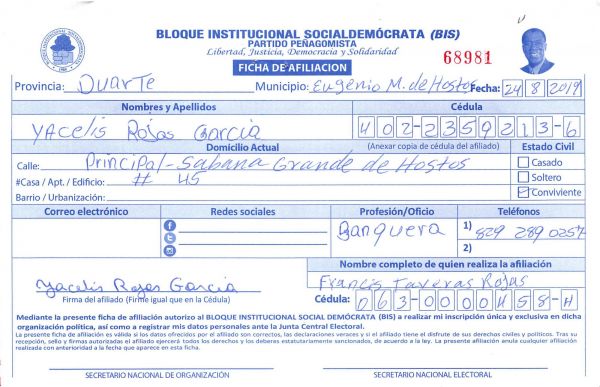 BLOQUE INSTITUCIONAL SOCIALDEMÓCRATA (BIS)
PARTIDO PEÑAGOMISTA
Libertad, Justicia, Democracia y Solidaridad
68981
FICHA DE AFILIACION
Provincia: Duarte Municipio: Eugenio M. de Hostos Fecha: 24/8/2019
Nombres y Apellidos Cédula
Yacelis Rojas Garcia 402-2359213-6
Domicilio Actual (Anexar copia de cédula del afiliado) Estado Civil
Calle: Principal-Sabana Grande de Hostos Casado
#Casa / Apt. / Edificio: # 45 Soltero
Barrio / Urbanización: Conviviente
Correo electrónico Redes sociales Profesión/Oficio Teléfonos
Banquera 1) 829 289 0257
2)
Nombre completo de quien realiza la afiliación
Yacelis Rojas Garcia Francis Taveras Rojas
Firma del afiliado (Firme igual que en la Cédula) Cédula: 063-0000458-4
Mediante la presente ficha de afiliación autorizo al BLOQUE INSTITUCIONAL SOCIAL DEMÓCRATA (BIS) a realizar mi inscripción única y exclusiva en dicha
organización política, así como a registrar mis datos personales ante la Junta Central Electoral.
La presente ficha de afiliación es válida si los datos ofrecidos por el afiliado son correctos, las declaraciones veraces y si el afiliado tiene el disfrute de sus derechos civiles y políticos. Tras su
recepción, sello y firmas autorizadas el afiliado ejercerá todos los derechos y los deberes estatutariamente sancionados, de acuerdo a la ley. La presente afiliación anula cualquier afiliación
realizada con anterioridad a la fecha que aparece en esta ficha.
SECRETARIO NACIONAL DE ORGANIZACIÓN SECRETARIO NACIONAL ELECTORAL